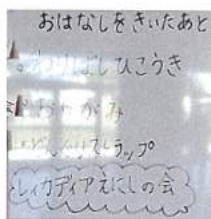 おはなしをきいたあと
わりばしひこうき
おりがみ
どんぐりでトラップ
レイカディアえにしの会